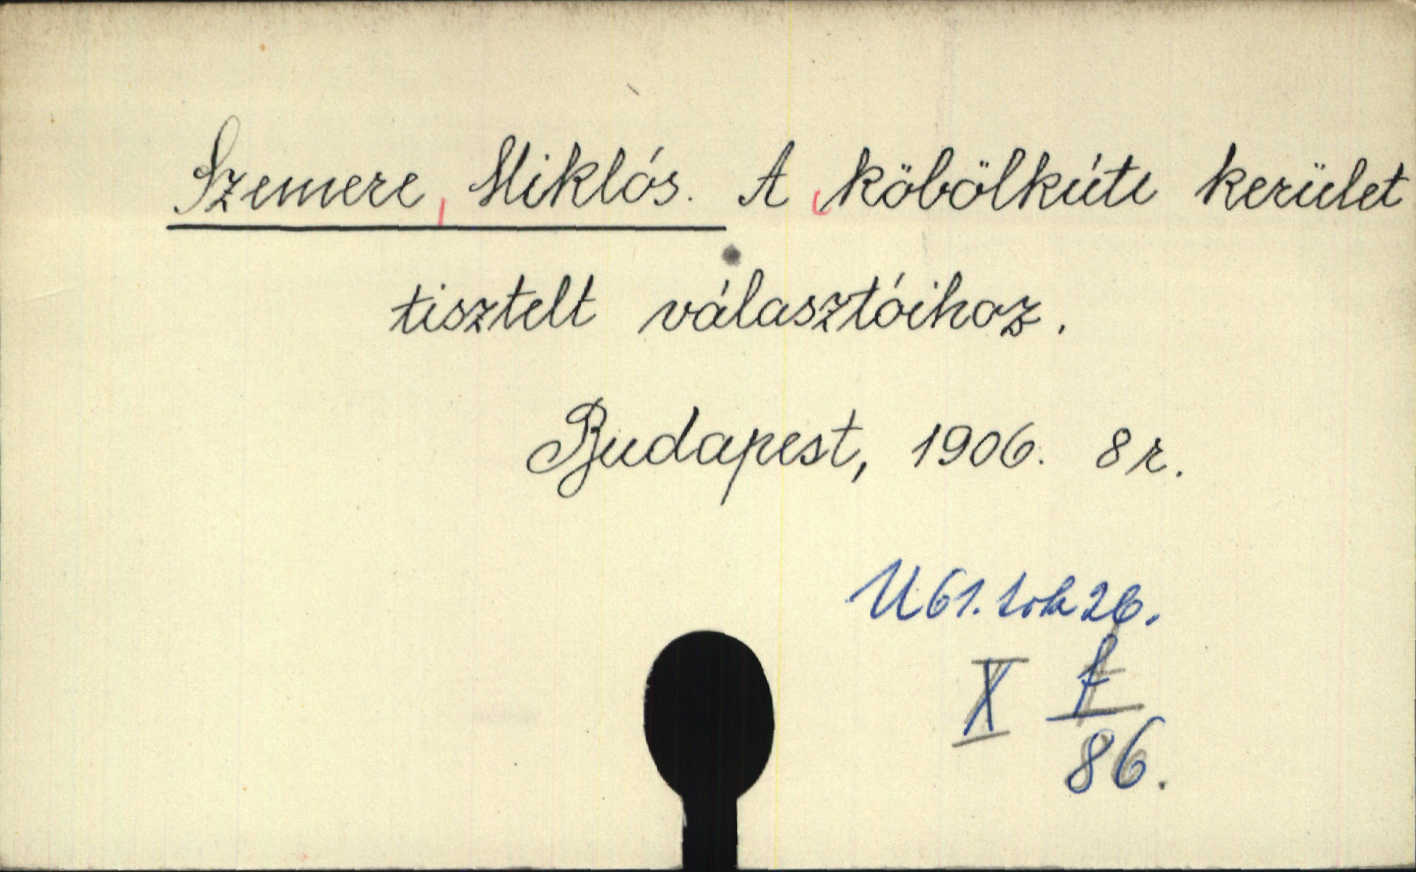 Szemere, Miklós. A köbölkúti kerület
tisztelt választóihoz.
Budapest, 1906. 8 r.
U 61. tok 26.
X f
86.